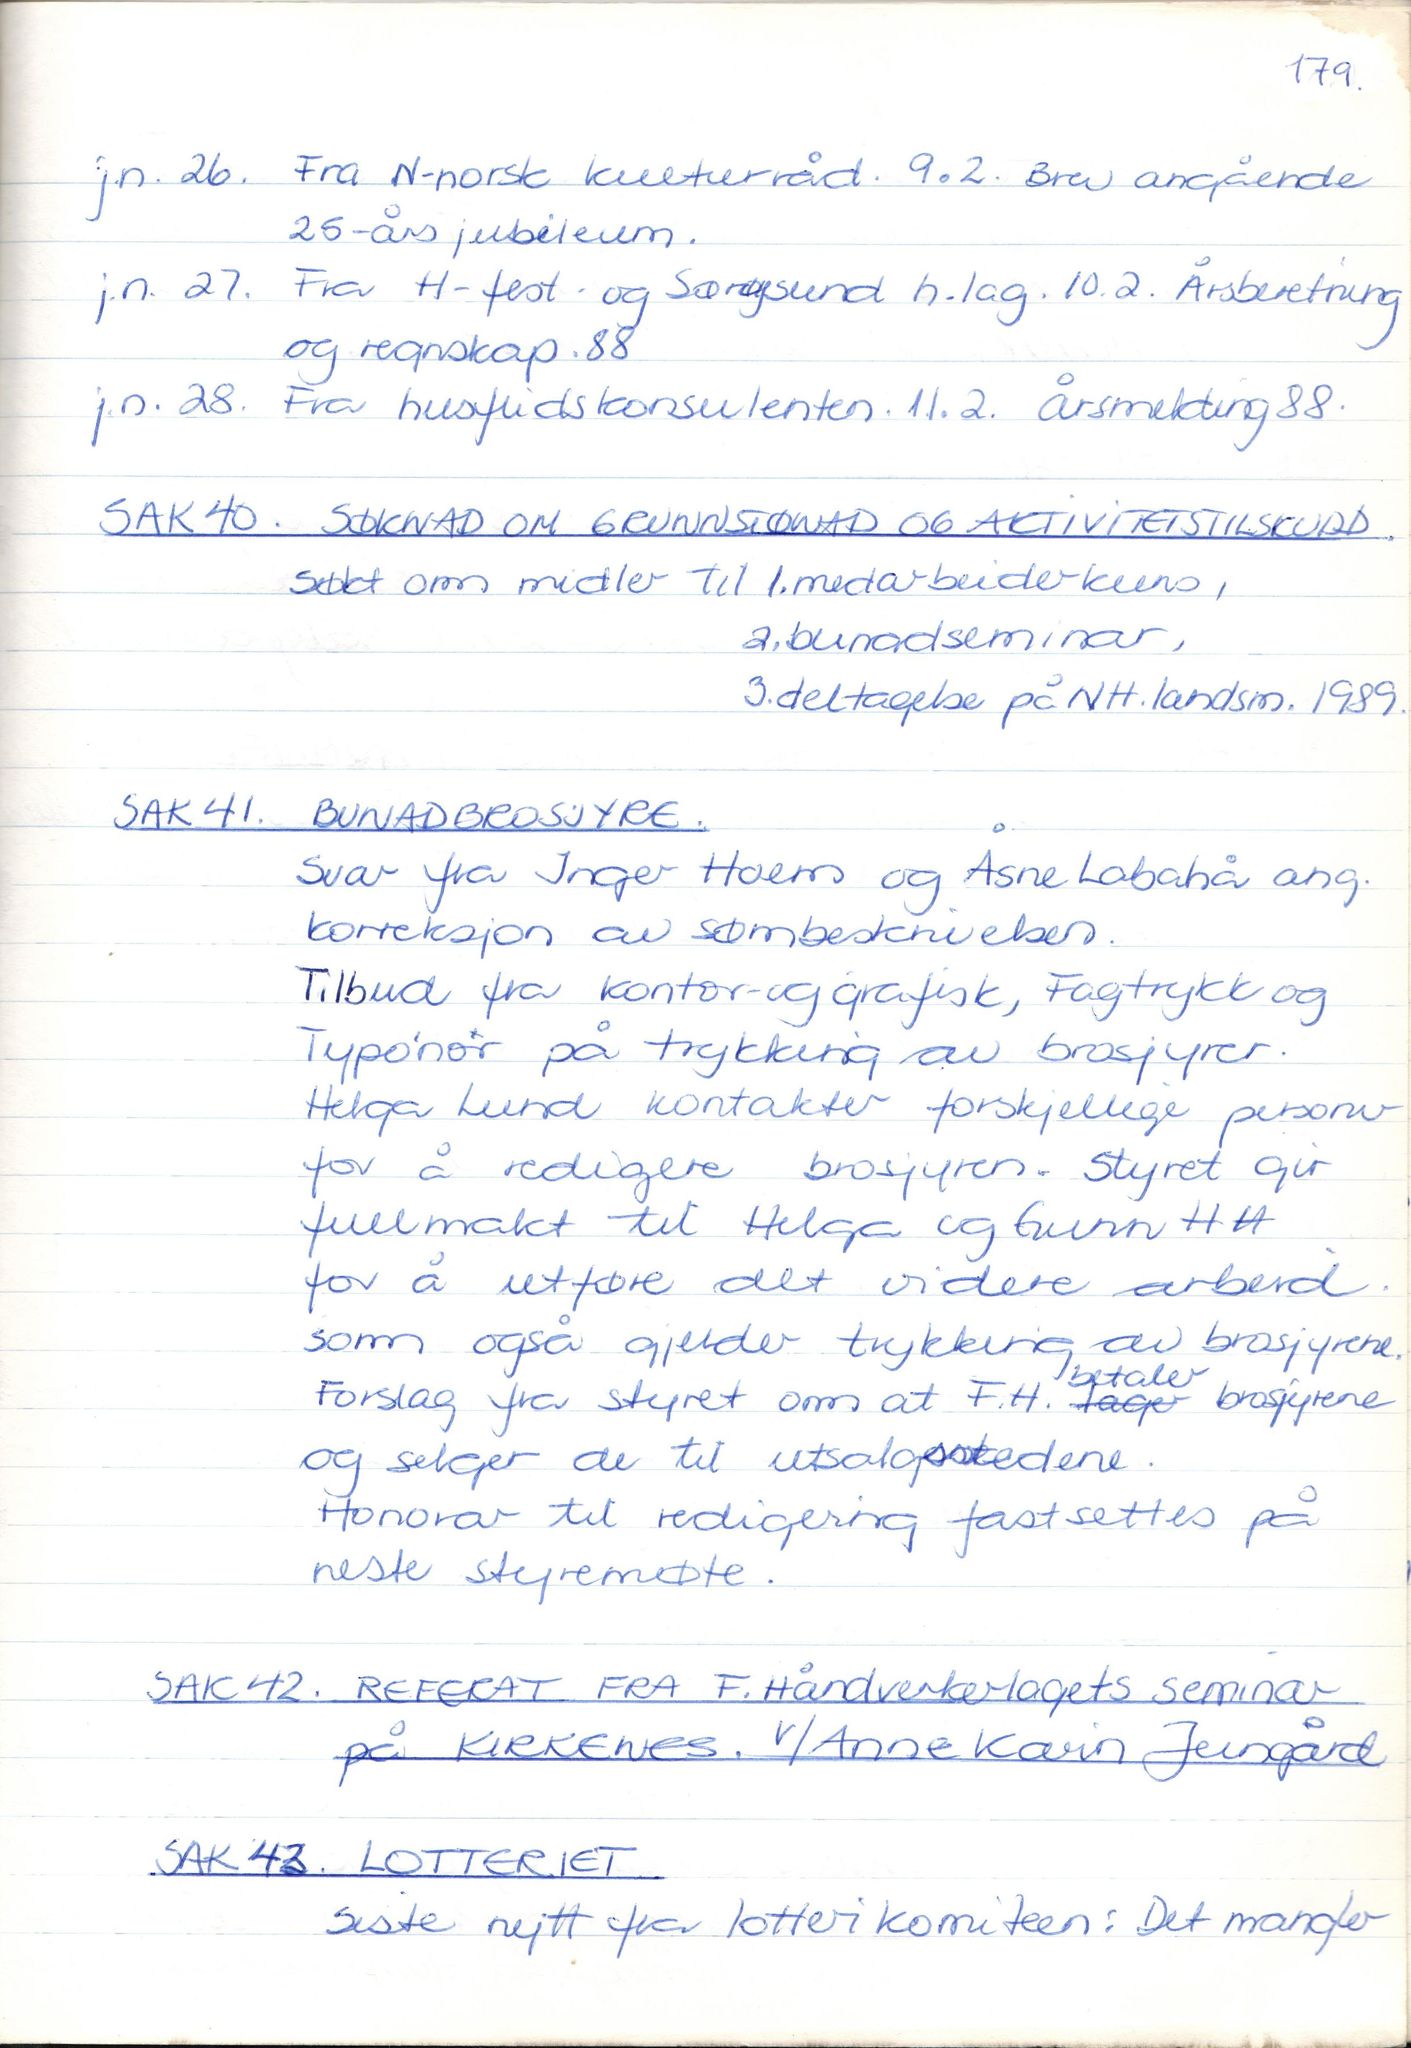 179.
j.n. 26. Fra N-norsk kulturråd. 9.2. Brev angående
25-års jubileum.
j.n. 27. Fra H-fest. og Sørøysund h.lag. 10.2. Årsberetning
og regnskap.88
j.n. 28. Fra husflidskonsulenten. 11.2. Årsmelding 88.
SAK 40. SØKNAD OM GRUNNSTØNAD OG AKTIVITETSTILSKUDD.
Søkt om midler til 1. medarbeiderkurs,
2. bunadseminar,
3. deltagelse på NH. landsm. 1989.
SAK 41. BUNADBROSJYRE.
Svar fra Inger Hoem og Åsne Labahå ang.
korreksjon av sømbeskrivelsen.
Tilbud fra kontor- og grafisk, Fagtrykk og
Typonor på trykking av brosjyrer.
Helga Lund kontakter forskjellige personer
for å redigere brosjyren. Styret gir
fullmakt til Helga og Gunn HH
for å utføre det videre arbeid.
som også gjelder trykking av brosjyrene.
Forslag fra styret om at F.H. lager betaler brosjyrene
og selger de til utsalgsstedene.
Honorar til redigering fastsettes på
neste styremøte.
SAK 42. REFERAT FRA F. Håndverkerlagets seminar
på KIRKENES. v/Anne Karin
SAK 43. LOTTERIET
Siste nytt fra lotterikomiteen: Det mangler